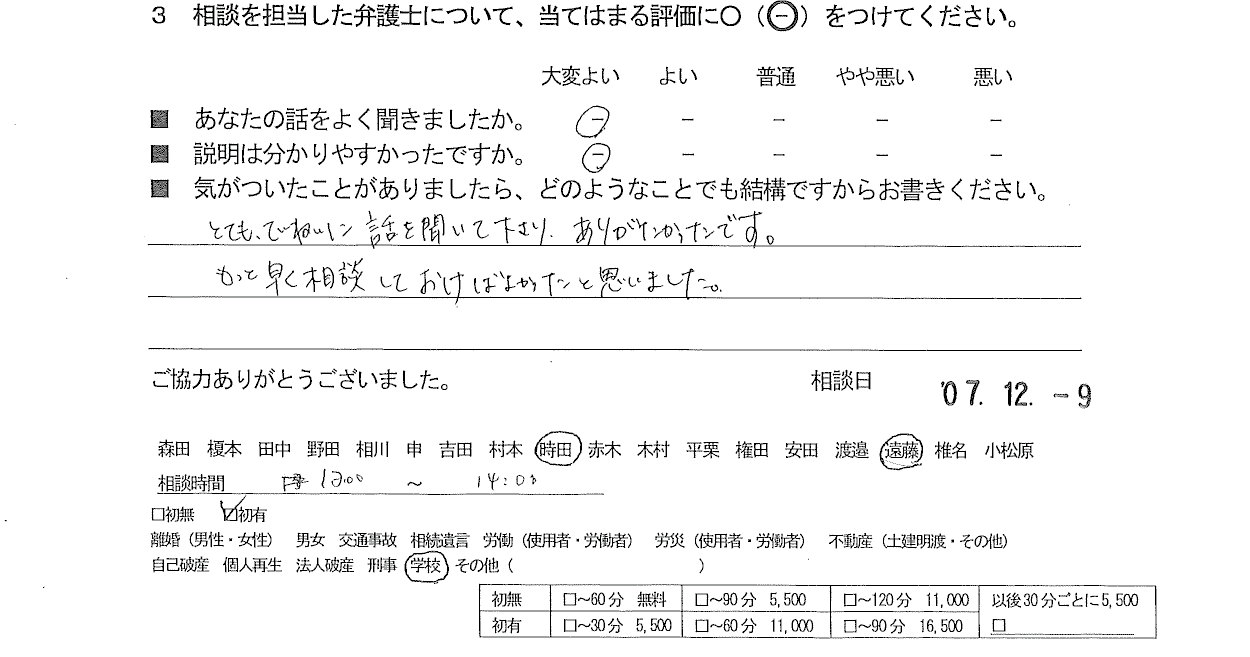 3 相談を担当した弁護士について、当てはまる評価に〇（㊀）をつけてください。
大変よい よい 普通 やや悪い 悪い
■ あなたの話をよく聞きましたか。 － － － － －
■ 説明は分かりやすかったですか。 － － － － －
■ 気がついたことがありましたら、どのようなことでも結構ですからお書きください。
とても、ていねいに話を聞いて下さり、ありがたかったです。
もっと早く相談しておけばよかったと思いました。
ご協力ありがとうございました。 相談日 '07.12.-9
森田 榎本 田中 野田 相川 申 吉田 村本 時田 赤木 木村 平栗 権田 安田 渡邉 遠藤 椎名 小松原
相談時間 12:00 ～ 14:00
□初無 ☑初有
離婚（男性・女性） 男女 交通事故 相続遺言 労働（使用者・労働者） 労災（使用者・労働者） 不動産（土建明渡・その他）
自己破産 個人再生 法人破産 刑事 学校 その他（ ）
初無 □～60分 無料 □～90分 5,500 □～120分 11,000 以後30分ごとに5,500
初有 □～30分 5,500 □～60分 11,000 □～90分 16,500 □